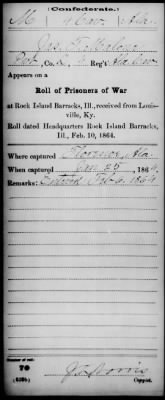 (Confederate.)
M 4 Cav. Ala.
Jas. F. Malone
Pvt, Co. 4 Reg't Ala. Cav.
Appears on a
Roll of Prisoners of War
at Rock Island Barracks, Ill., received from Louis-
ville, Ky.
Roll dated Headquarters Rock Island Barracks,
Ill., Feb. 10, 1864.
Where captured Florence, Ala.
When captured Jan 25, 1864.
Remarks: Feb 6, 1864
Number of roll:
70
(639b) J. S. Copyist.